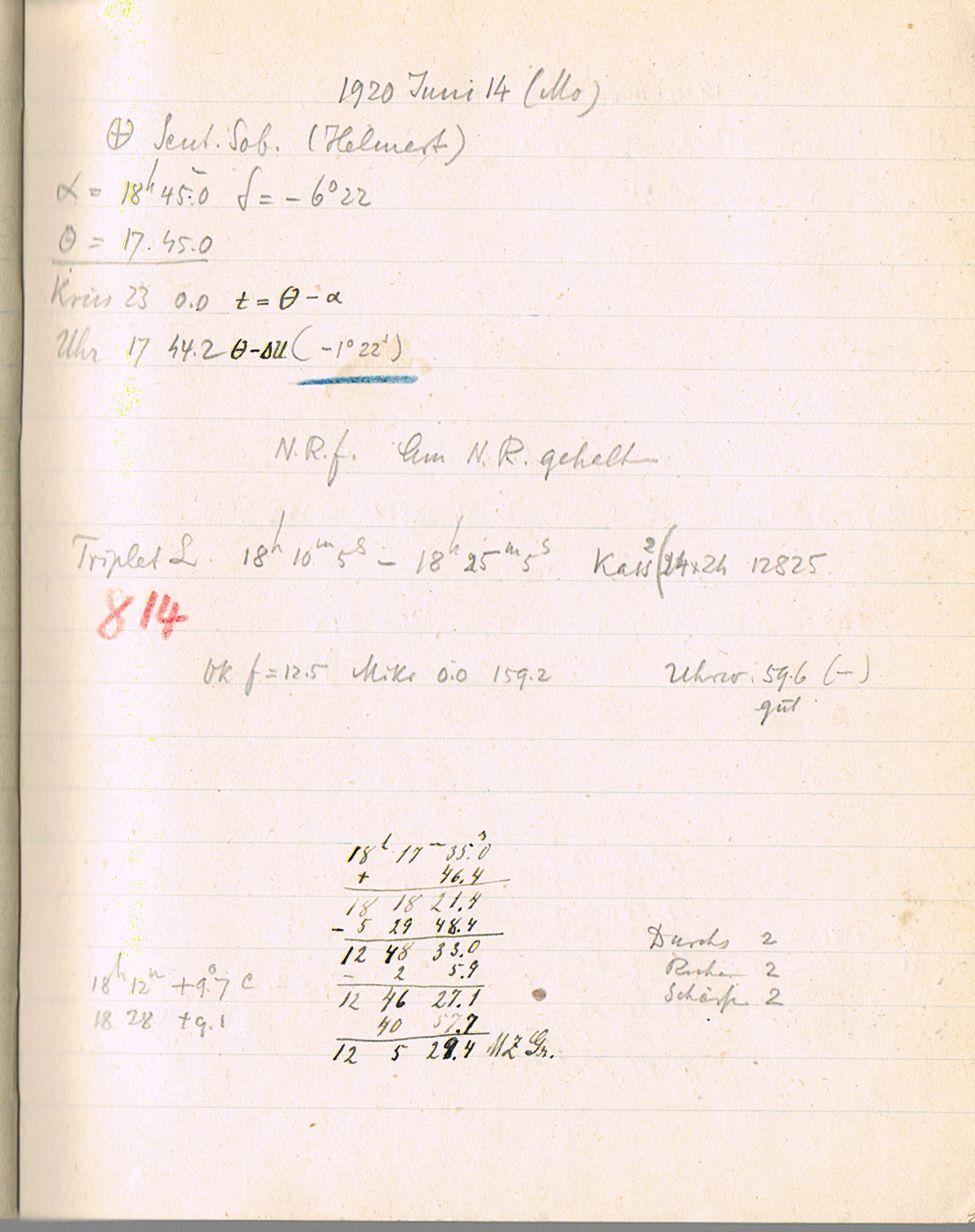 1920 Juni 14 (Mo)
⊕ Scut. Sob. (Helmert)
α = 18h 45.0 δ = - 6° 22
θ = 17. 45.0
Kreis 23 0.0 t = θ - α
Uhr 17 44.2 θ-ΔU ( -1° 22' )
N.R.f. Am N.R. gehalt
Triplet L 18h 10m 5s - 18h 25m 5s Kass 2 (24×24 12825
814
Ok f = 12.5 Mikr 0.0 159.2 Uhrw. 59.6 (-)
gut
18h 17m 35.s0
+ 46.4
18 18 21.4
- 5 29 48.4
12 48 33.0
- 2 5.9
12 46 27.1
40 57.7
12 5 29.4 MZ Gr.
Durchs 2
Ruhe 2
Schärfe 2
18h 12m +9.°7 C
18 28 +9.1